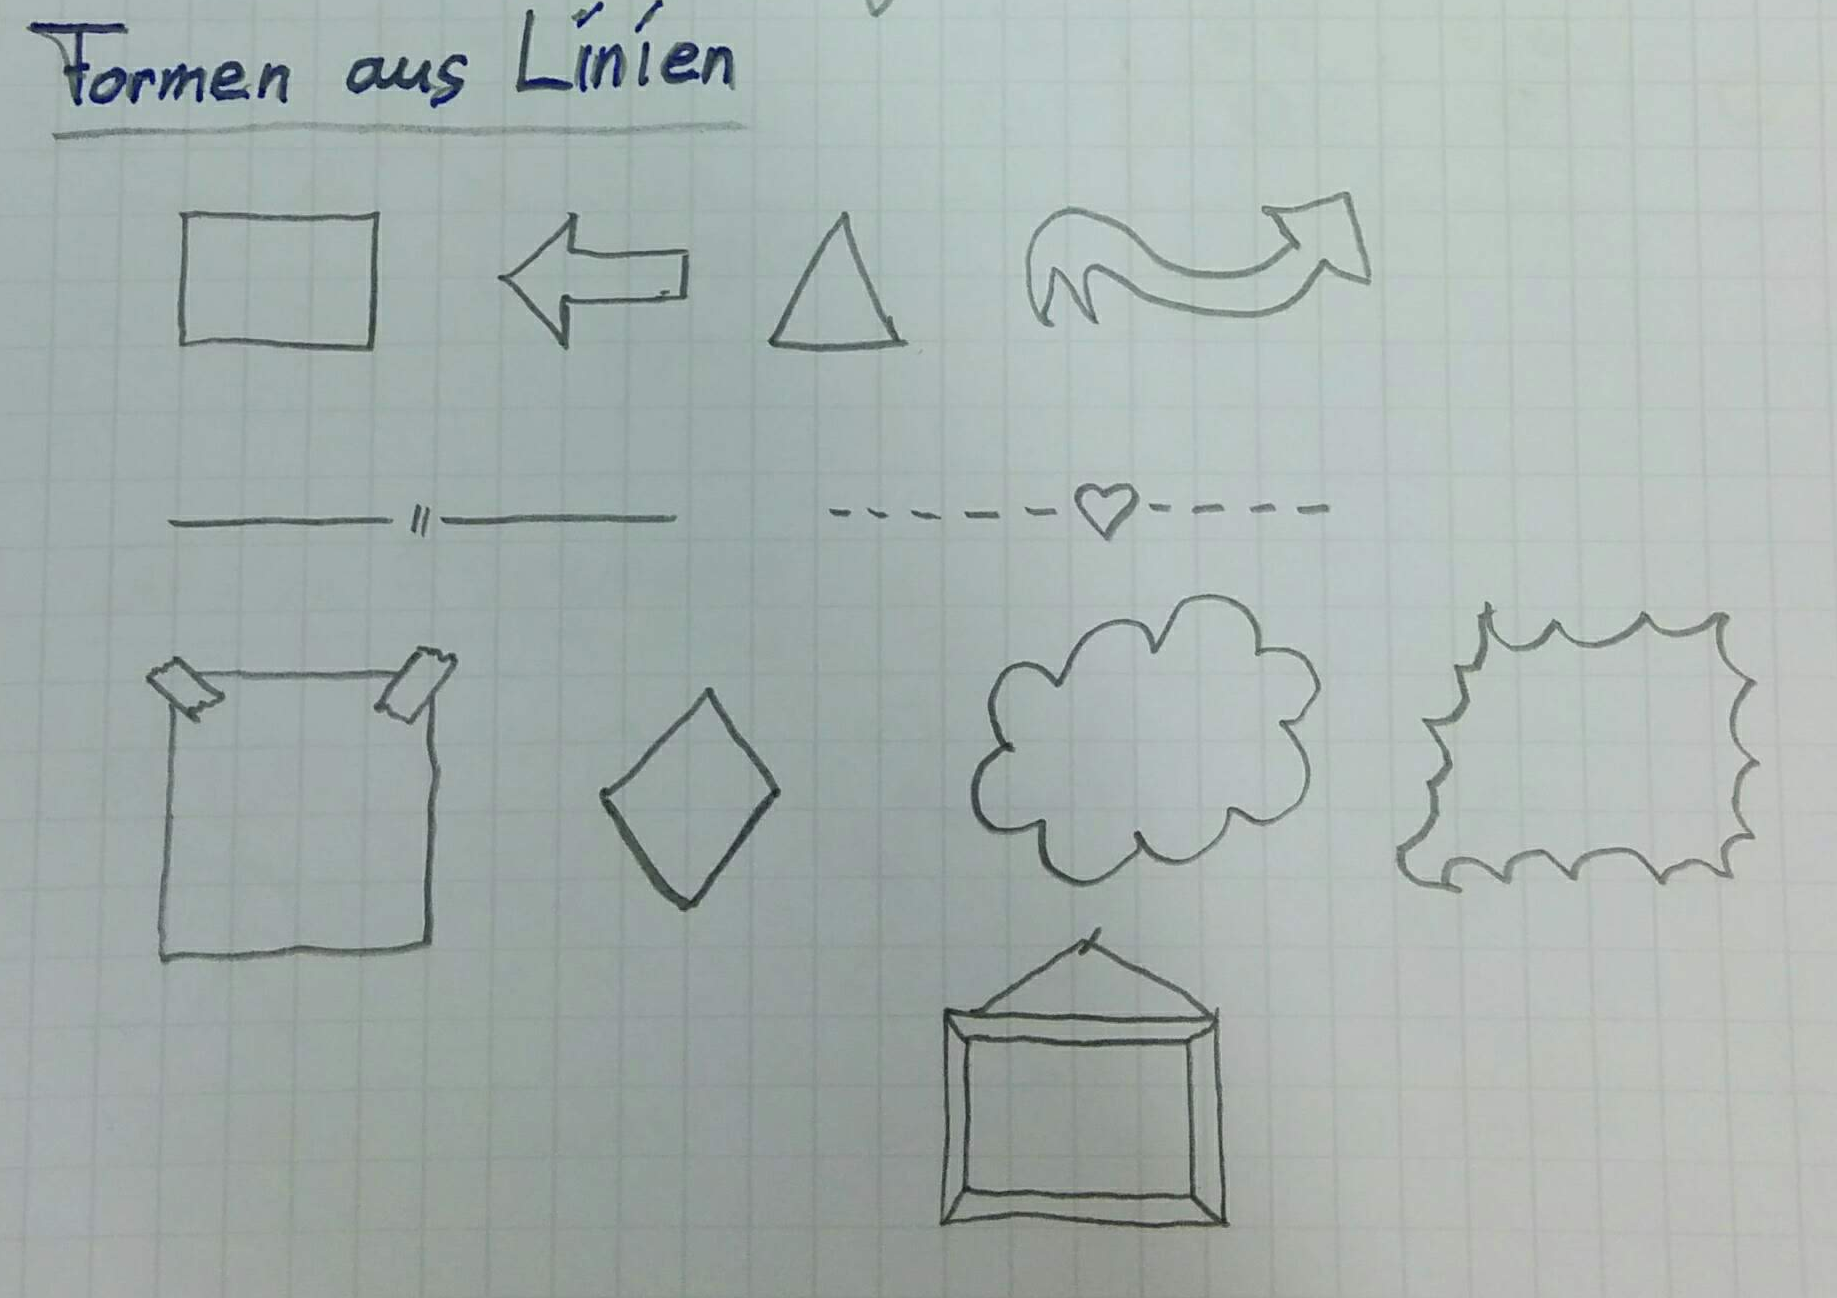 Formen aus Linien